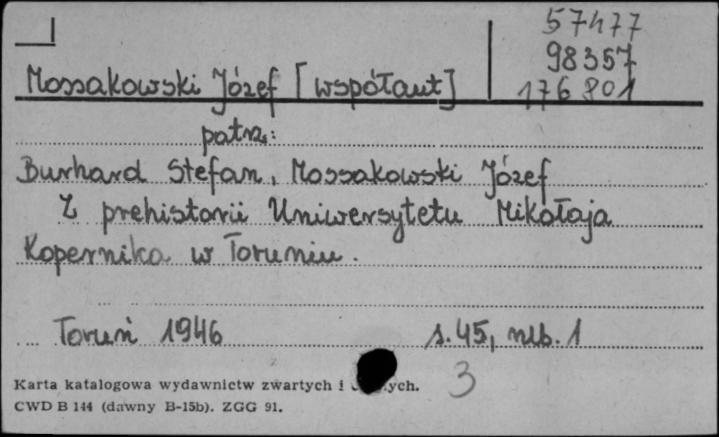 57477
98357
Mossakowski Józef [współaut] 176801
patrz:
Burhard Stefan, Mossakowski Józef
Z prehistorii Uniwersytetu Mikołaja
Kopernika w Toruniu.
Toruń 1946 s. 45, nlb. 1
3
Karta katalogowa wydawnictw zwartych i
CWD B 144 (dawny B-15b). ZGG 91.